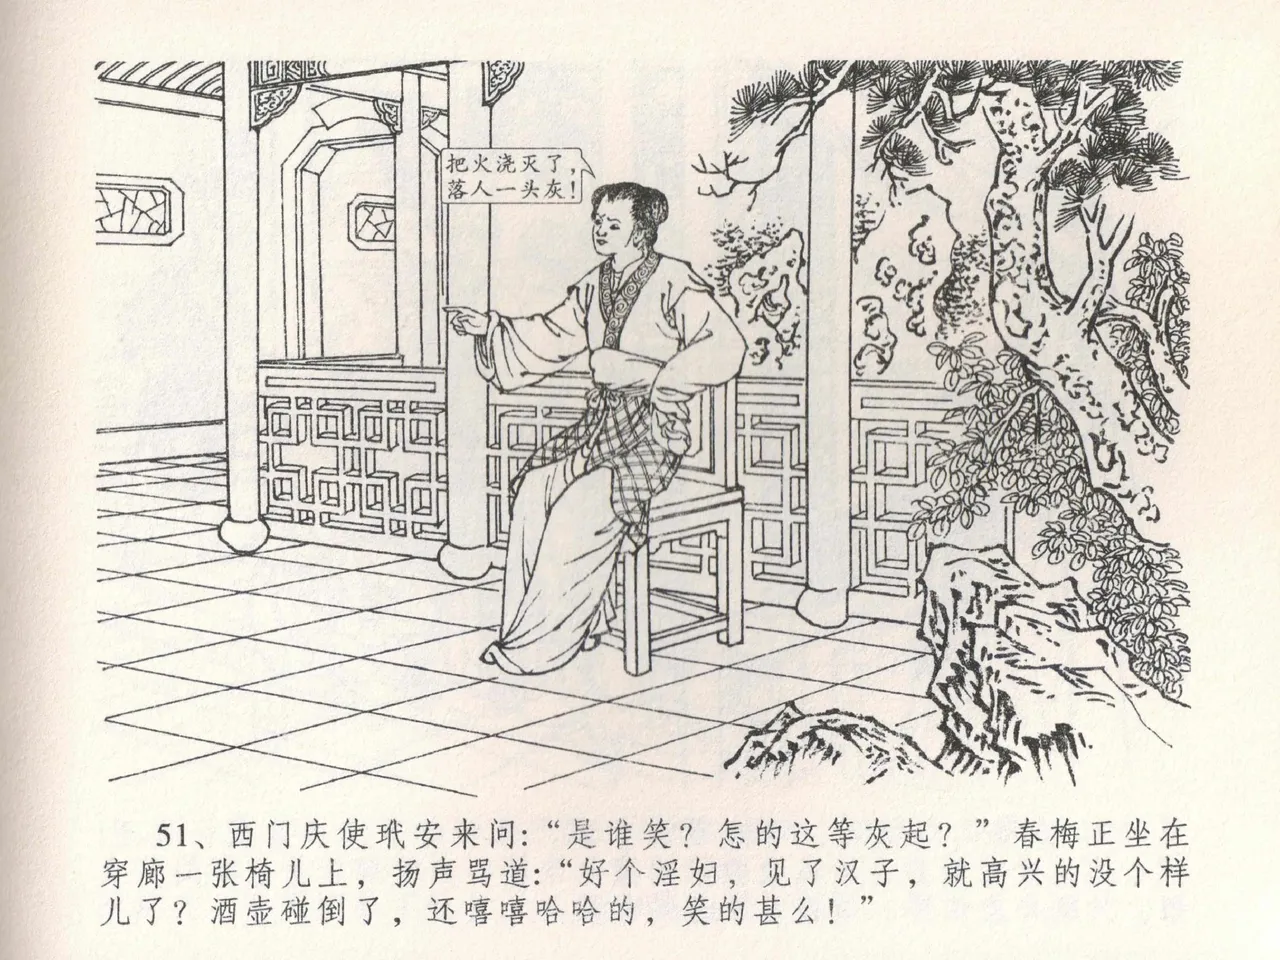 把火浇灭了，
落人一头灰！
51、西门庆使玳安来问：“是谁笑？怎的这等灰起？”春梅正坐在
穿廊一张椅儿上，扬声骂道：“好个淫妇，见了汉子，就高兴的没个样
儿了？酒壶碰倒了，还嘻嘻哈哈的，笑的甚么！”